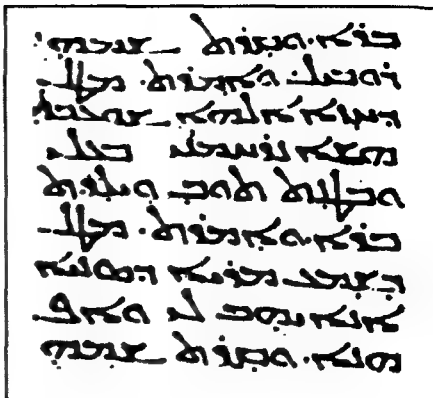 ܒܪܐ. ܘܩܪܬ ܫܡܗ
ܪܘܒܝܠ. ܘܐܡܪܬ. ܡܛܠ
ܕܚܙܐ ܐܠܗܐ ܫܘܥܒܕܝ
ܗܫܐ ܢܪܚܡܢܝ ܒܥܠܝ
ܘܒܛܢܬ ܬܘܒ ܘܝܠܕܬ
ܒܪܐ. ܘܐܡܪܬ. ܡܛܠ
ܕܫܡܥ ܡܪܝܐ ܕܣܢܝܐ
ܐܢܐ ܝܗܒ ܠܝ ܘܐܦ
ܗܢܐ. ܘܩܪܬ ܫܡܗ